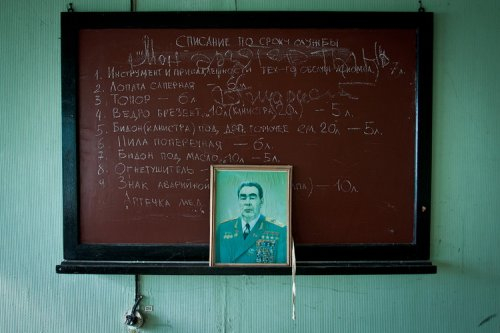 Списание по сроку службы
1. Инструмент и принадлежности тех-го обслуживания 7 л.
2. Лопата саперная 6 л
3. Топор — 6 л
4. Ведро брезент. 10л (канистра 20л) — 5 л.
5. Бидон (канистра) под горючее ем. 20л — 5 л.
6. Пила поперечная — 6 л.
7. Бидон под масло 10л — 5 л.
8. Огнетушитель —
9 Знак аварийной — 10 л.
Аптечка мед.